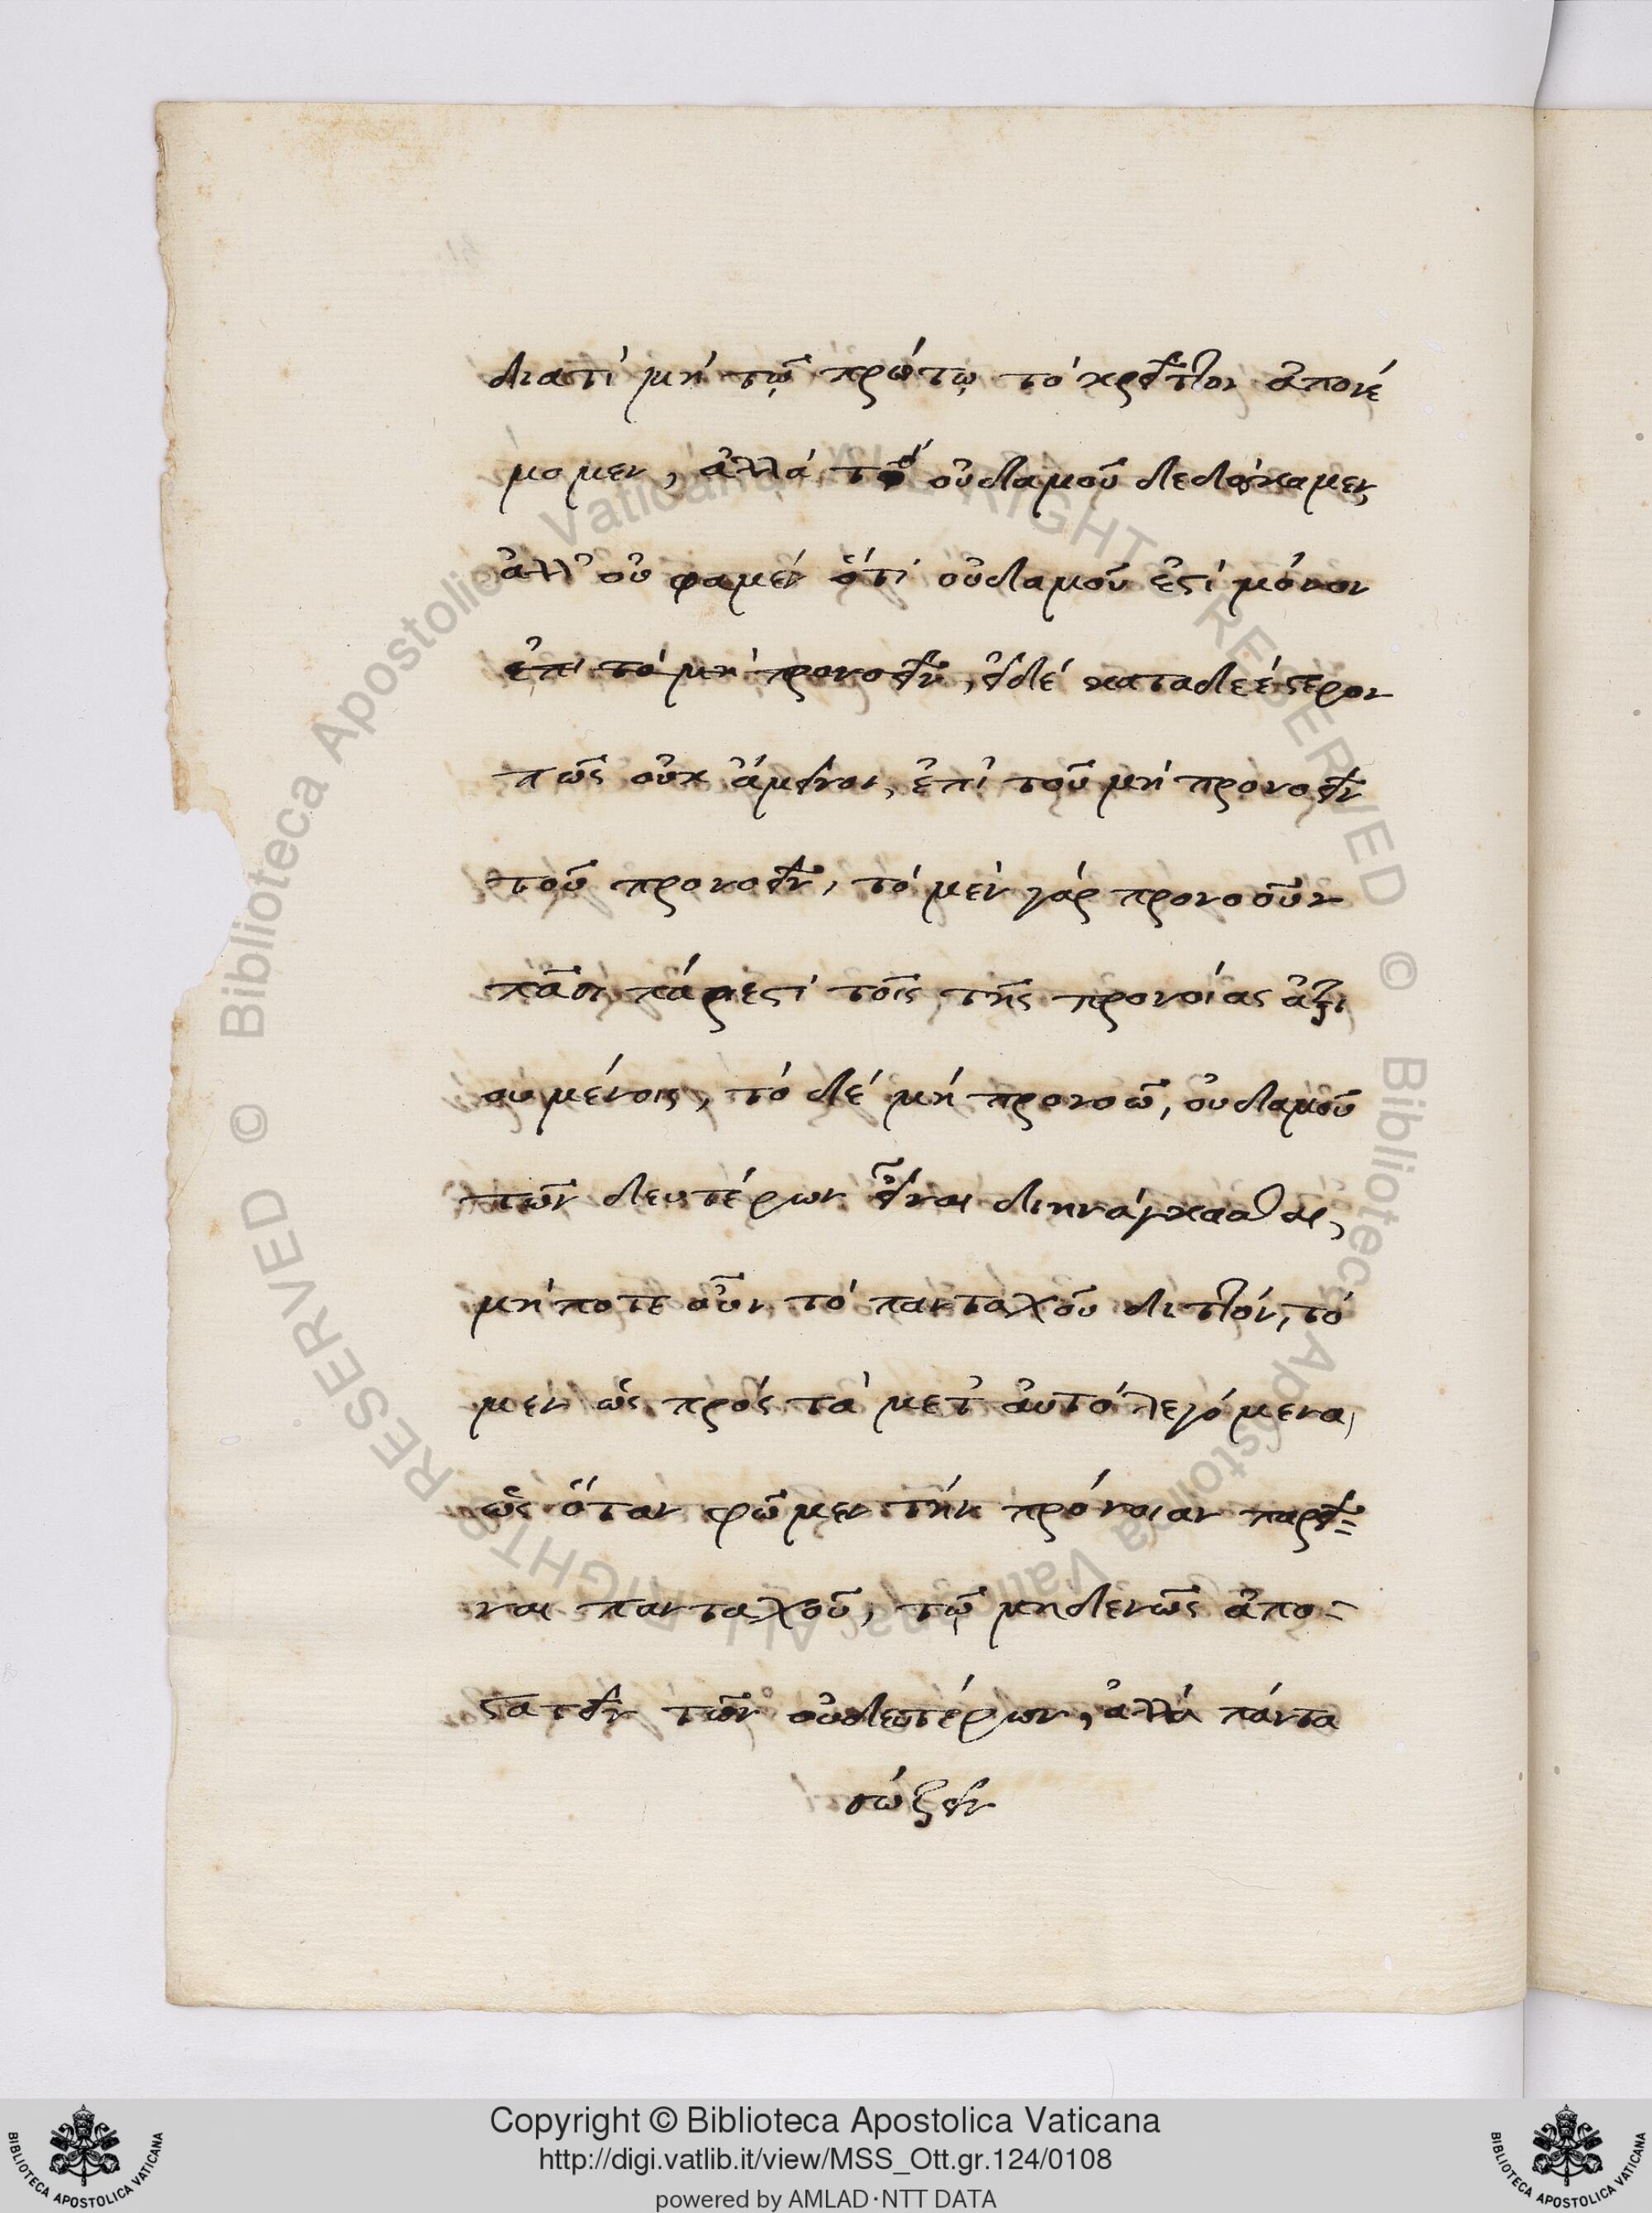 διατί μή τῶ πρώτω τό κρεῖττον ἀπονέ
μομεν, ἀλλά τό οὐδαμοῦ δεδώκαμεν,
ἀλλ' οὐ φαμέν ὅτι οὐδαμοῦ ἐστί μόνον
ἐπί τό μή προνοεῖν, εἰ δέ καταδεέστερον
πῶς οὐκ ἄμεινον, ἐπί τοῦ μή προνοεῖν
τοῦ προνοεῖν, τό μέν γάρ προνοοῦν
πᾶσι πάρεστι τοῖς τῆς προνοίας ἀξι
ουμένοις, τό δέ μή προνοῶ, οὐδαμοῦ
τῶν δευτέρων εἶναι διηνάγκασθαι,
μήποτε οὖν τό πανταχοῦ διττόν, τό
μέν ὡς πρός τά μετ' αὐτό λεγόμενα,
ὡς ὅταν φῶμεν τήν πρόνοιαν παρεῖ=
ναι πανταχοῦ, τῶ μηδενῶς ἀπο-
στατεῖν τῶν οὐδευτέρων, ἀλλά πάντα
σώζειν
© Biblioteca Apostolica Vaticana ALL RIGHTS RESERVED © Biblioteca Apostolica Vaticana ALL RIGHTS RESERVED
Copyright © Biblioteca Apostolica Vaticana
http://digi.vatlib.it/view/MSS_Ott.gr.124/0108
powered by AMLAD·NTT DATA
BIBLIOTECA APOSTOLICA VATICANA
BIBLIOTECA APOSTOLICA VATICANA